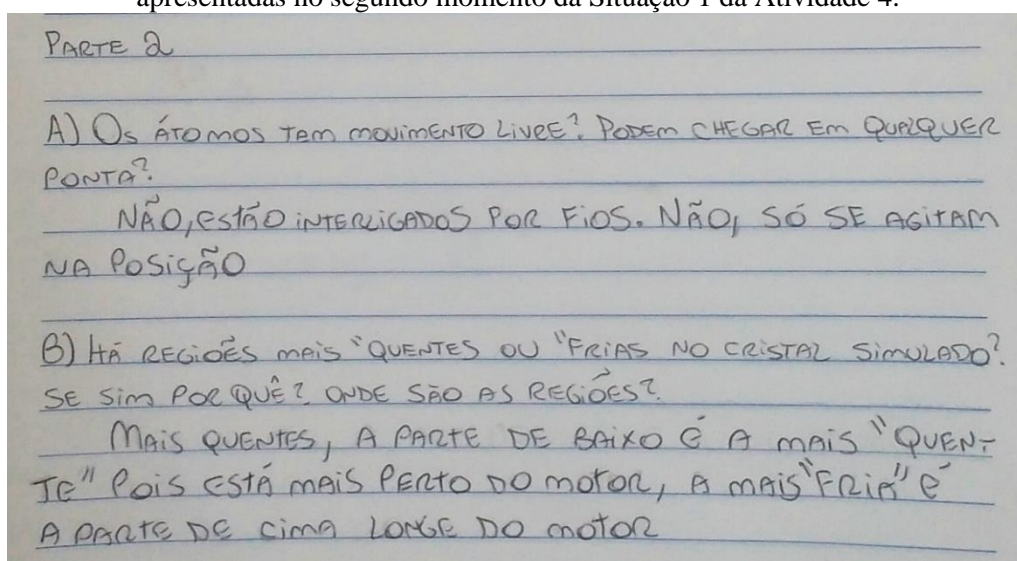 apresentadas no segundo momento da Situação 1 da Atividade 4.
PARTE 2
A) OS ÁTOMOS TEM MOVIMENTO LIVRE? PODEM CHEGAR EM QUALQUER
PONTA?
NÃO, ESTÃO INTERLIGADOS POR FIOS. NÃO, SÓ SE AGITAM
NA POSIÇÃO
B) HÁ REGIÕES MAIS "QUENTES OU "FRIAS NO CRISTAL SIMULADO?
SE SIM POR QUÊ? ONDE SÃO AS REGIÕES?
MAIS QUENTES, A PARTE DE BAIXO É A MAIS "QUEN-
TE" POIS ESTÁ MAIS PERTO DO MOTOR, A MAIS "FRIA" É
A PARTE DE CIMA LONGE DO MOTOR